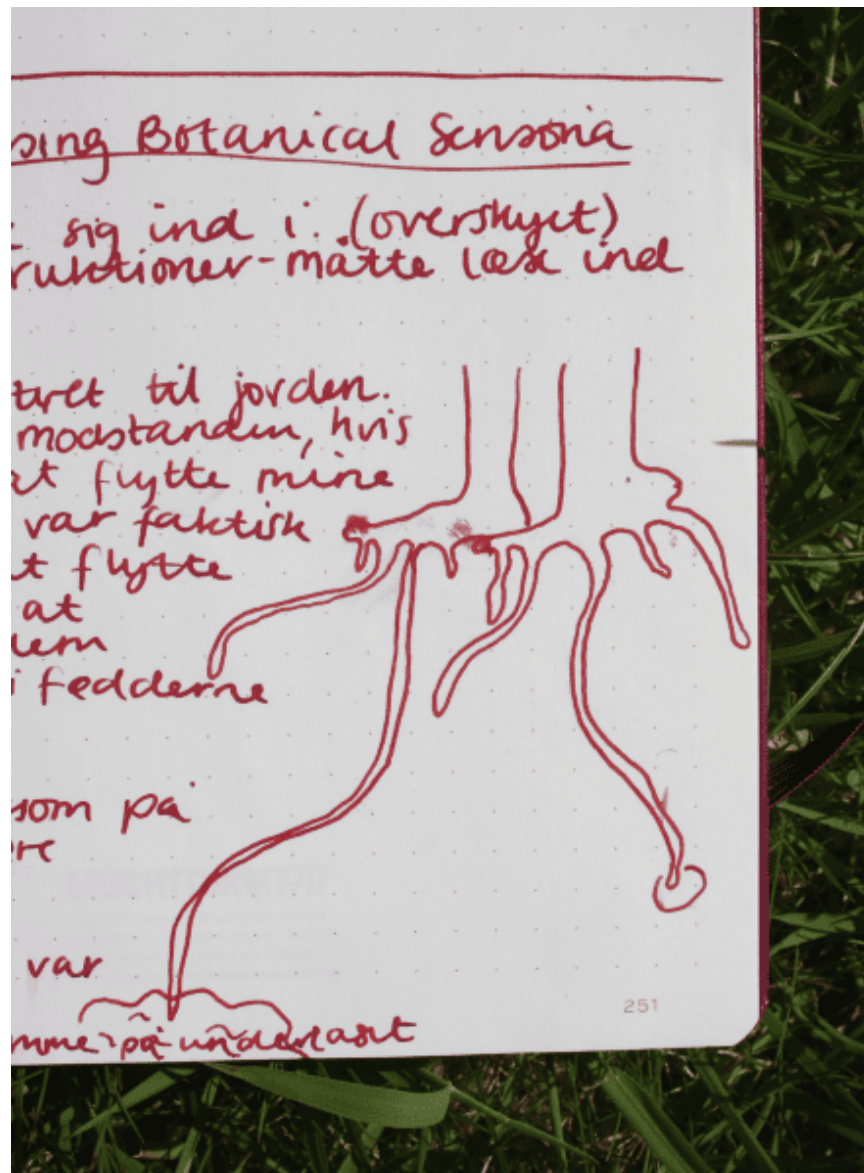 sing Botanical Sensoria
sig ind i. (overskyet)
ruktioner - måtte læse ind
til jorden.
modstanden, hvis
at flytte mine
var faktisk
at flytte
at
dem
i fødderne
som på
ere
var
på
251